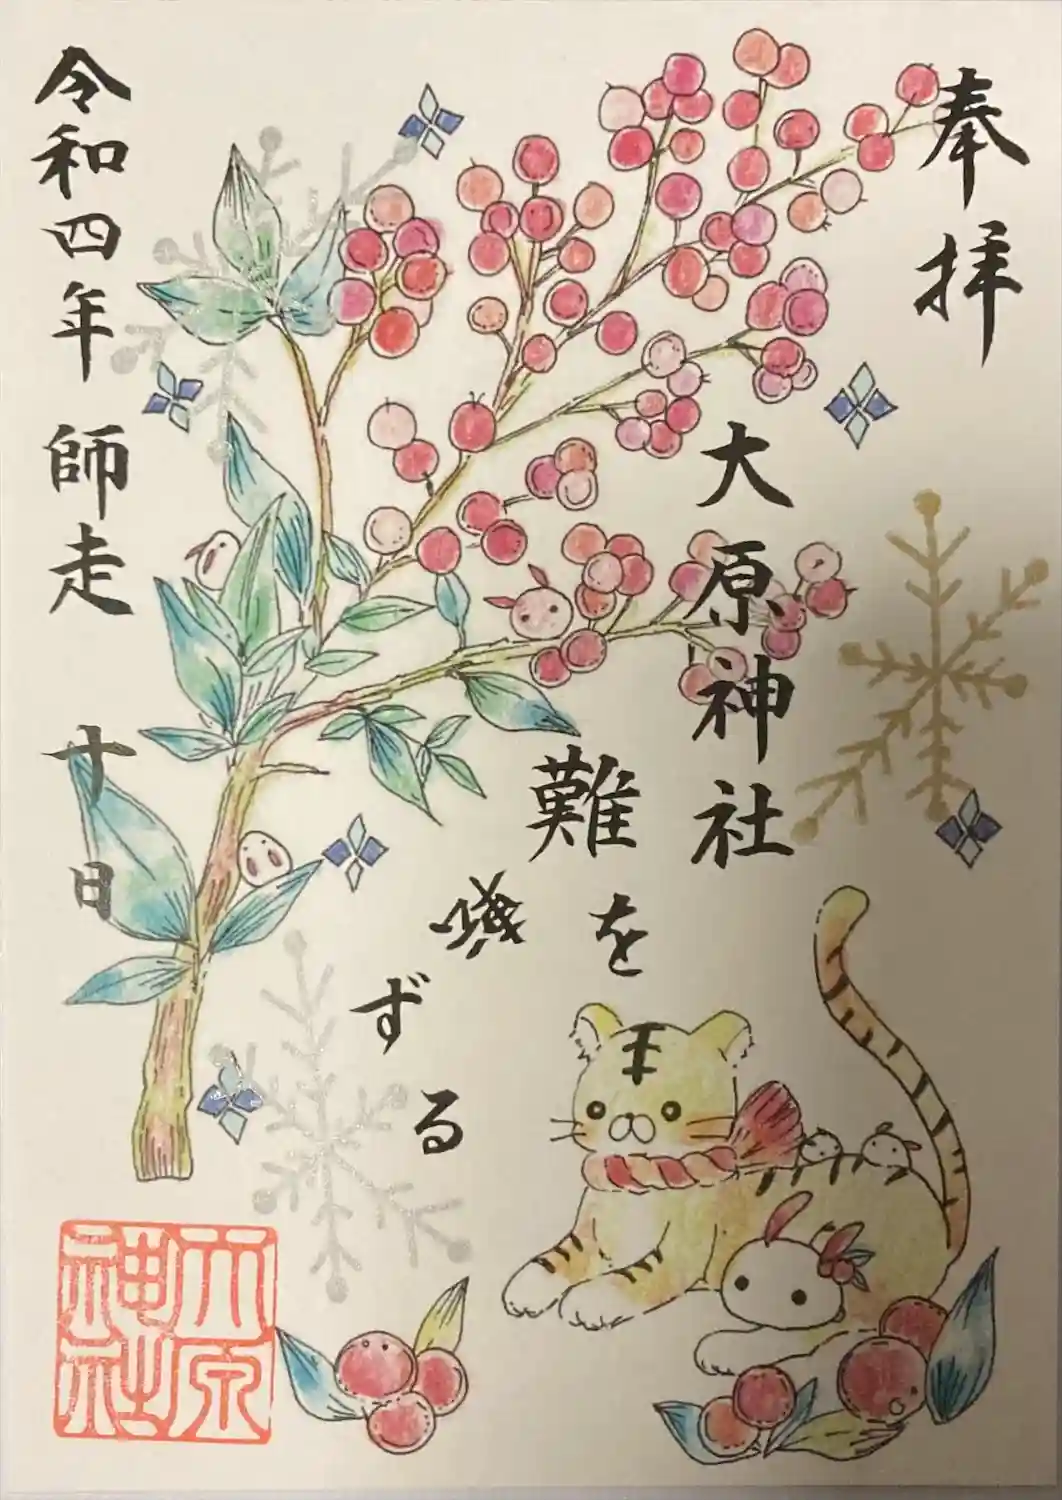 奉拝
大原神社
難を
ずる
令和四年 師走 十日
大原
神社